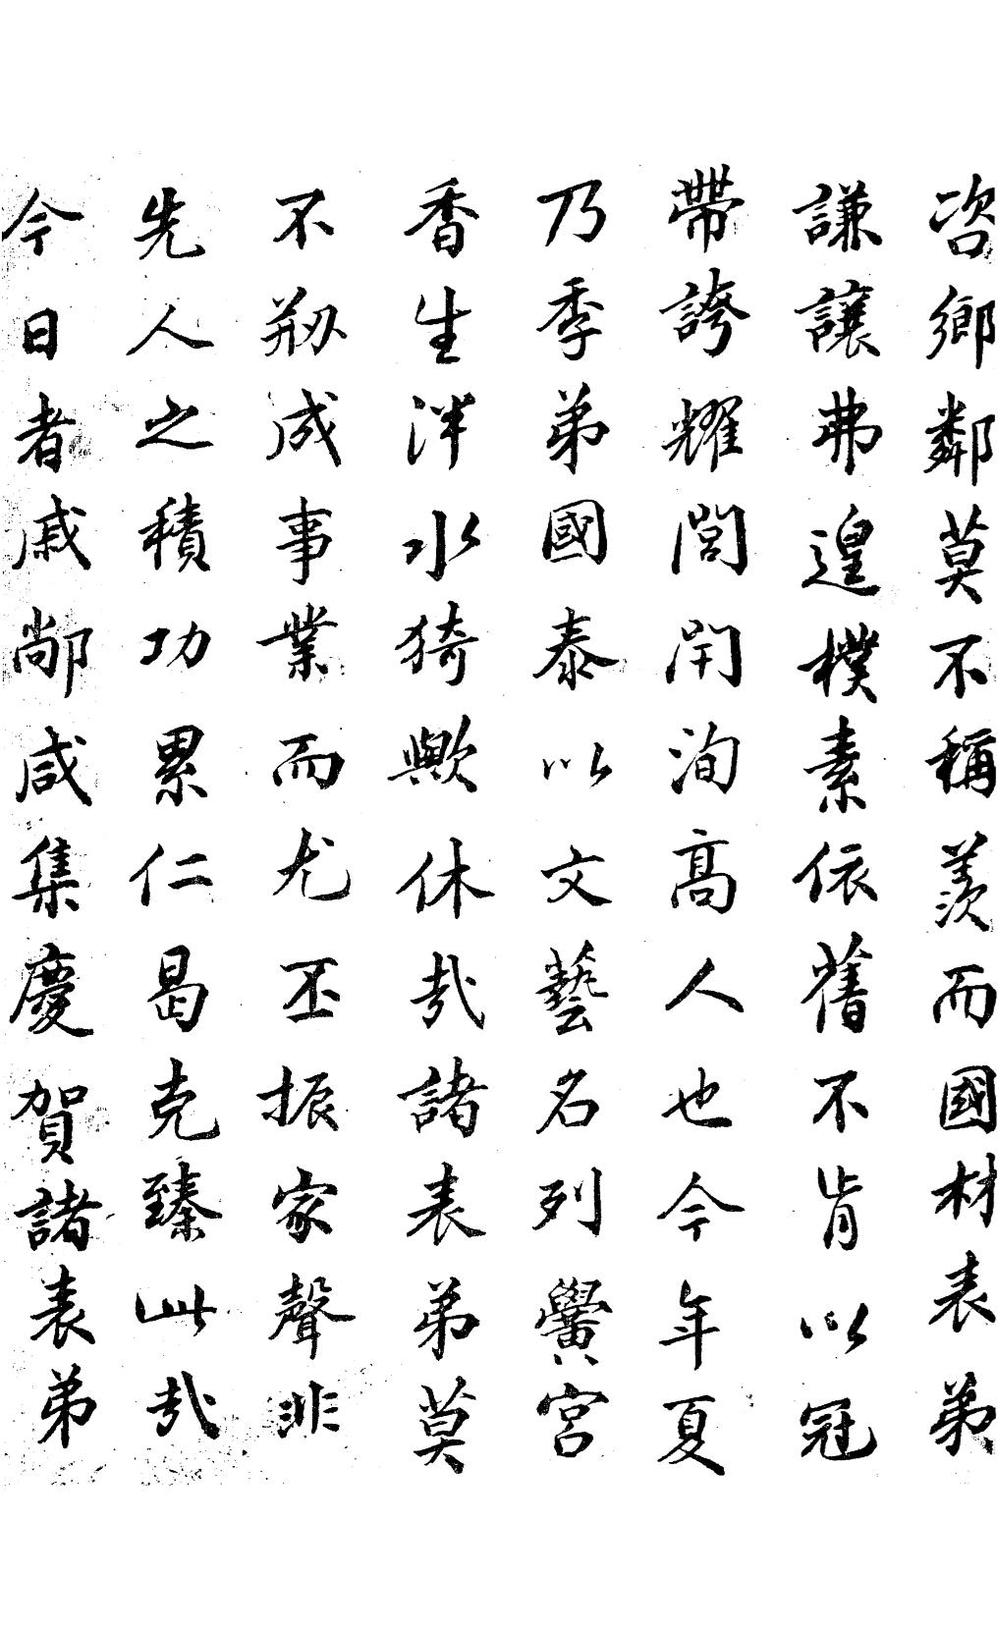 咨鄉鄰莫不稱羨而國材表弟
謙讓弗遑樸素依舊不肯以冠
帶誇耀閭閈洵高人也今年夏
乃季弟國泰以文藝名列黌宮
香生泮水猗歟休哉諸表弟莫
不剏成事業而尤丕振家聲非
先人之積功累仁曷克臻此哉
今日者戚鄰咸集慶賀諸表弟